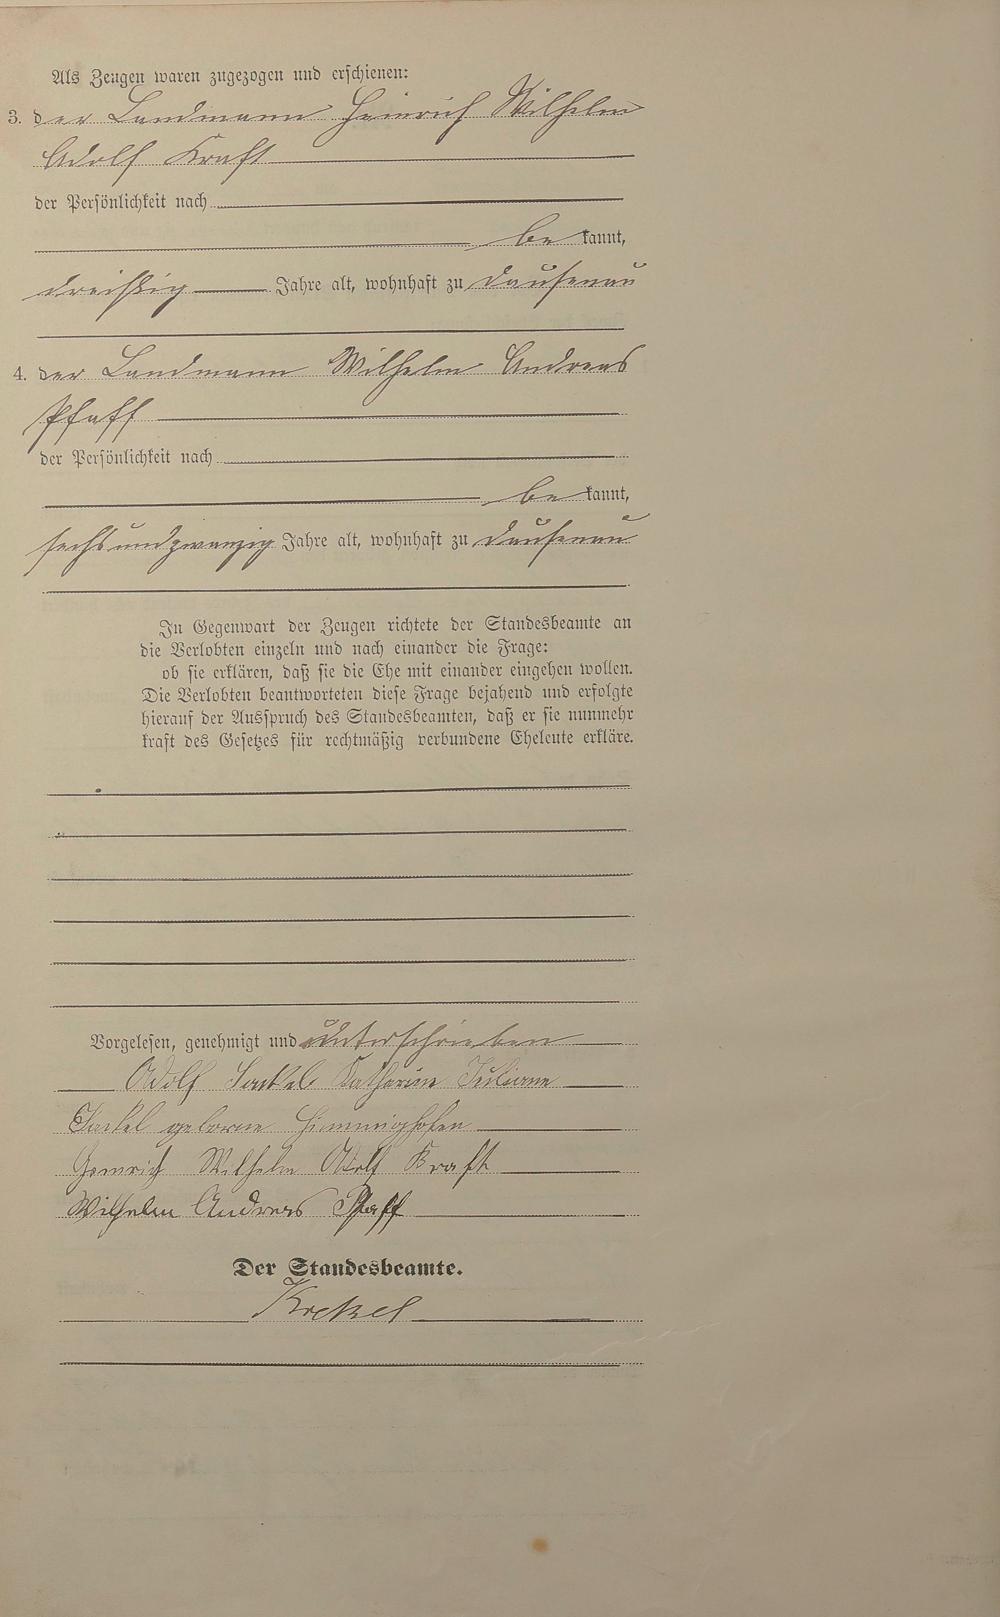 Als Zeugen waren zugezogen und erschienen:
3. der Landmann Heinrich Wilhelm
Adolf Kraft
der Persönlichkeit nach
be kannt,
dreißig Jahre alt, wohnhaft zu Dausenau
4. der Landmann Wilhelm Andreas
Pfaff
der Persönlichkeit nach
be kannt,
sechsundzwanzig Jahre alt, wohnhaft zu Dausenau
In Gegenwart der Zeugen richtete der Standesbeamte an
die Verlobten einzeln und nach einander die Frage:
ob sie erklären, daß sie die Ehe mit einander eingehen wollen.
Die Verlobten beantworteten diese Frage bejahend und erfolgte
hierauf der Ausspruch des Standesbeamten, daß er sie nunmehr
kraft des Gesetzes für rechtmäßig verbundene Eheleute erkläre.
Vorgelesen, genehmigt und unterschrieben
Adolf Katharine Juliane
geborne Himmighofen
Heinrich Wilhelm Adolf Kraft
Wilhelm Andreas Pfaff
Der Standesbeamte.